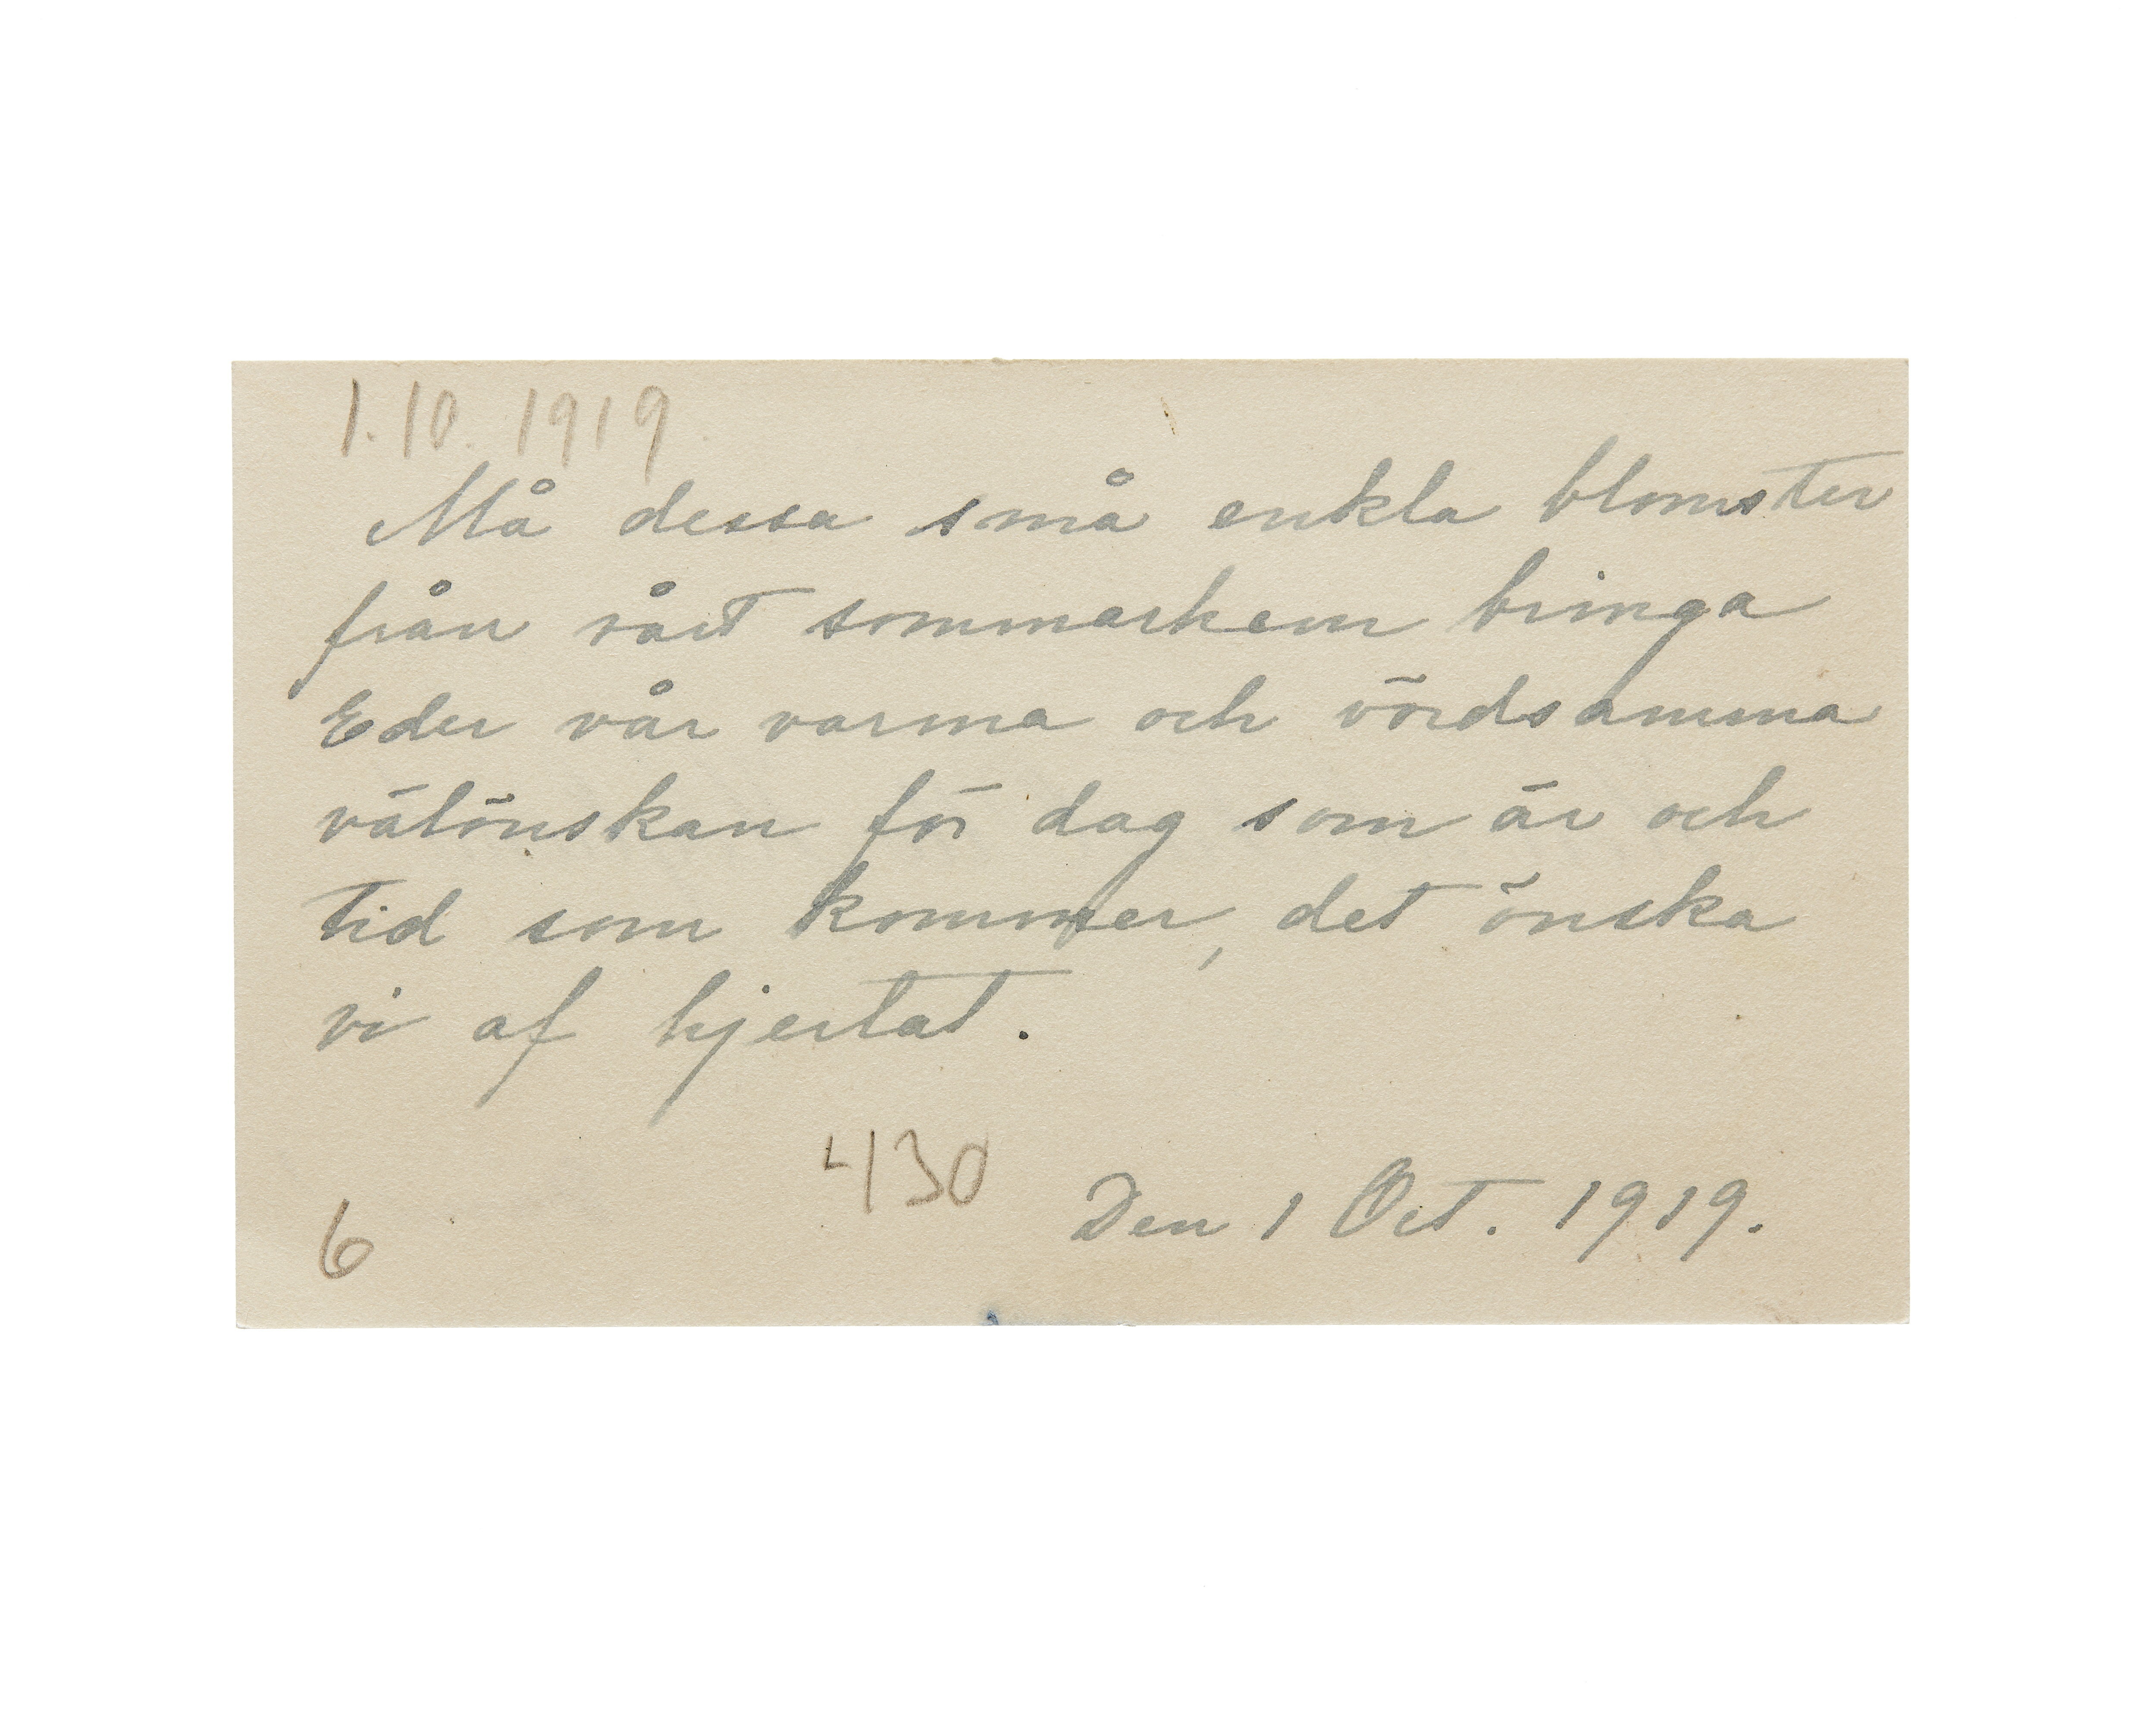 1.10.1919.
Må dessa små enkla blomster
från vårt sommarhem bringa
Eder vår varma och vördsamma
välönskan för dag som är och
tid som kommer, det önska
vi af hjertat.
430
Den 1 Oct. 1919.
6